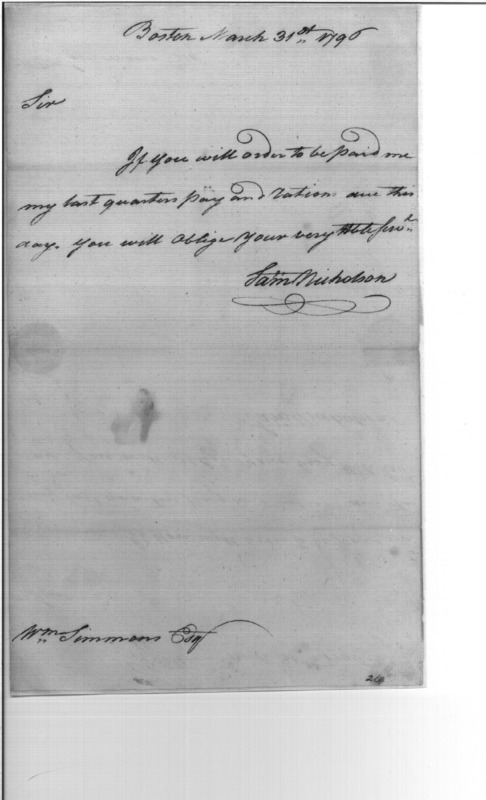 Boston March 31st 1796
Sir
If you will order to be paid me
my last quarters pay and rations due this
day. you will oblige your very Hble Servt
Sam Nicholson
Wm Simmons Esqr